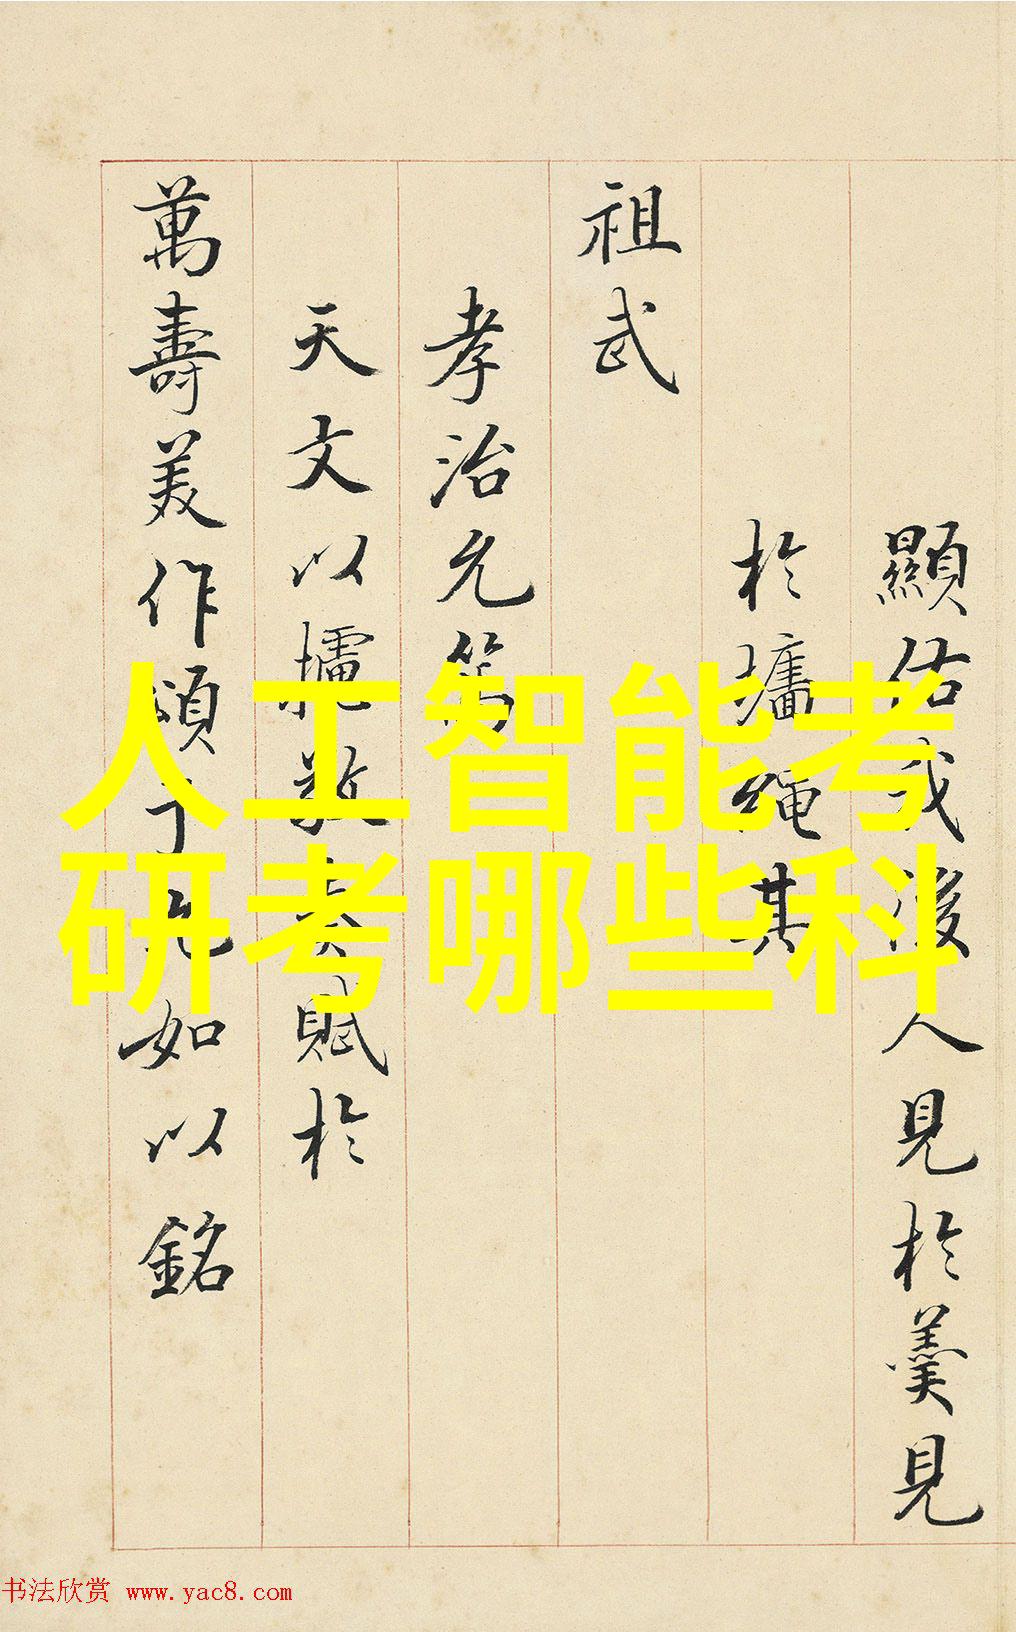 顯佑我後人見於羹見
於墻繩其
祖武
孝治允篤
天文以攄敷奏賦於
萬壽美作頌九如以銘
人工智能考
研考哪些科
书法欣赏 www.yac8.com